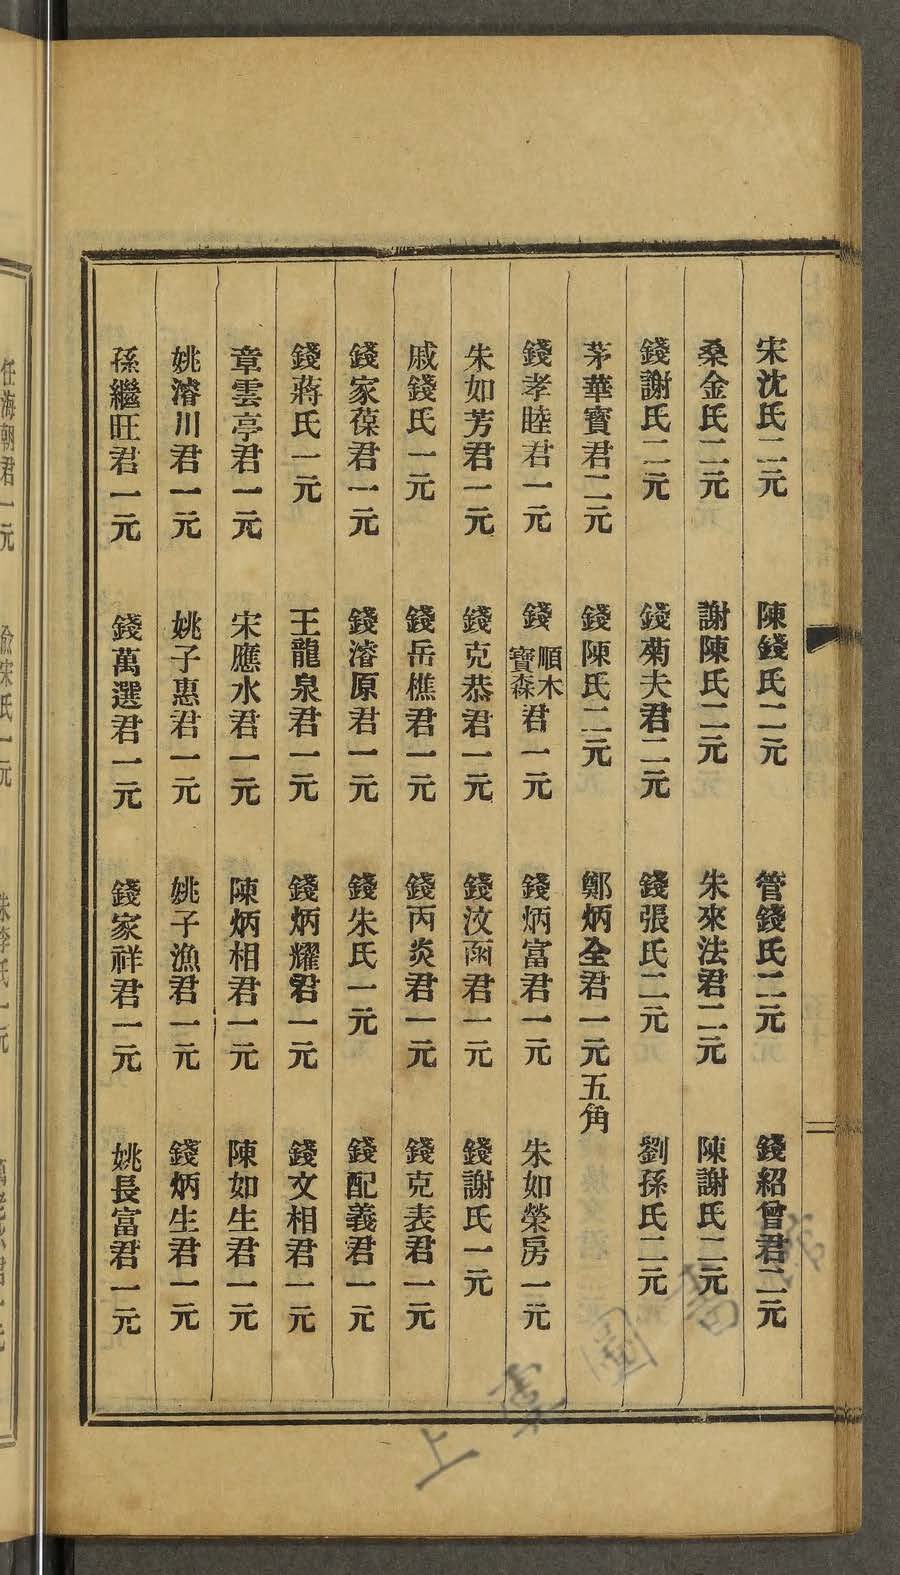 宋沈氏二元　陳錢氏二元　管錢氏二元　錢紹曾君二元
桑金氏二元　謝陳氏二元　朱來法君二元　陳謝氏二元
錢謝氏二元　錢菊夫君二元　錢張氏二元　劉孫氏二元
茅華寶君二元　錢陳氏二元　鄭炳全君一元五角
錢孝睦君一元　錢順木寶森君一元　錢炳富君一元　朱如榮房一元
朱如芳君一元　錢克恭君一元　錢汶函君一元　錢謝氏一元
戚錢氏一元　錢岳樵君一元　錢丙炎君一元　錢克表君一元
錢家葆君一元　錢濬原君一元　錢朱氏一元　錢配義君一元
錢蔣氏一元　王龍泉君一元　錢炳耀君一元　錢文相君一元
章雲亭君一元　宋應水君一元　陳炳相君一元　陳如生君一元
姚濬川君一元　姚子惠君一元　姚子漁君一元　錢炳生君一元
孫繼旺君一元　錢萬選君一元　錢家祥君一元　姚長富君一元
任海朝君一元　俞宋氏一元　朱李氏一元
上虞圖書館